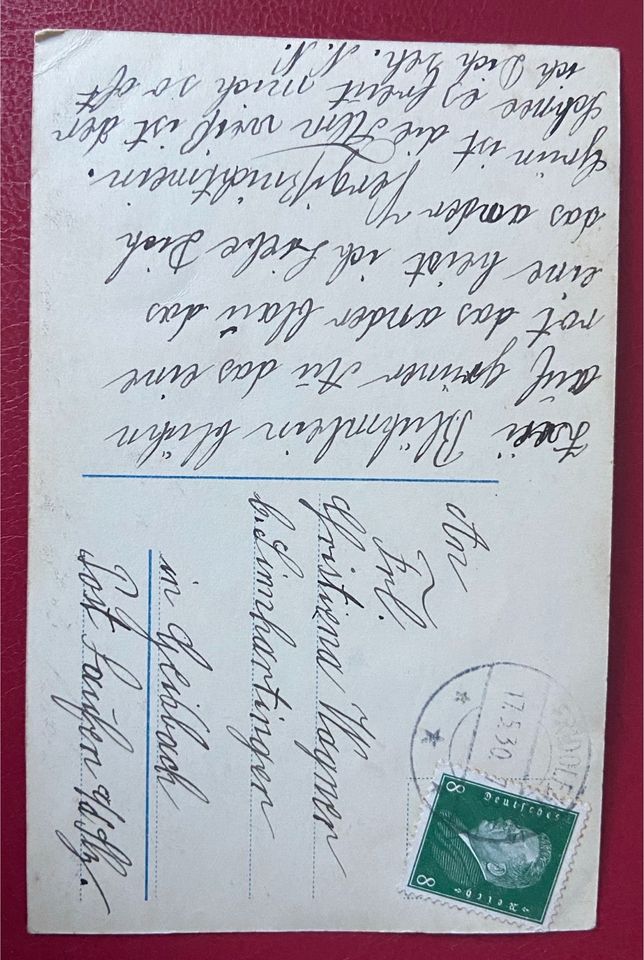 Zwei Blühmlein blühn
auf grüner Au das eine
rot das ander blau das
eine heist ich Liebe Dich
das ander Vergißnichtmein.
Grün ist die Alm weiß ist der
Schnee es freut mich so oft
ich Dich seh. N.N.
An
Frl.
Wagner
b. Limhartinger
in
Post Laufen
17.5.30
8 Deutsches
8 Reich